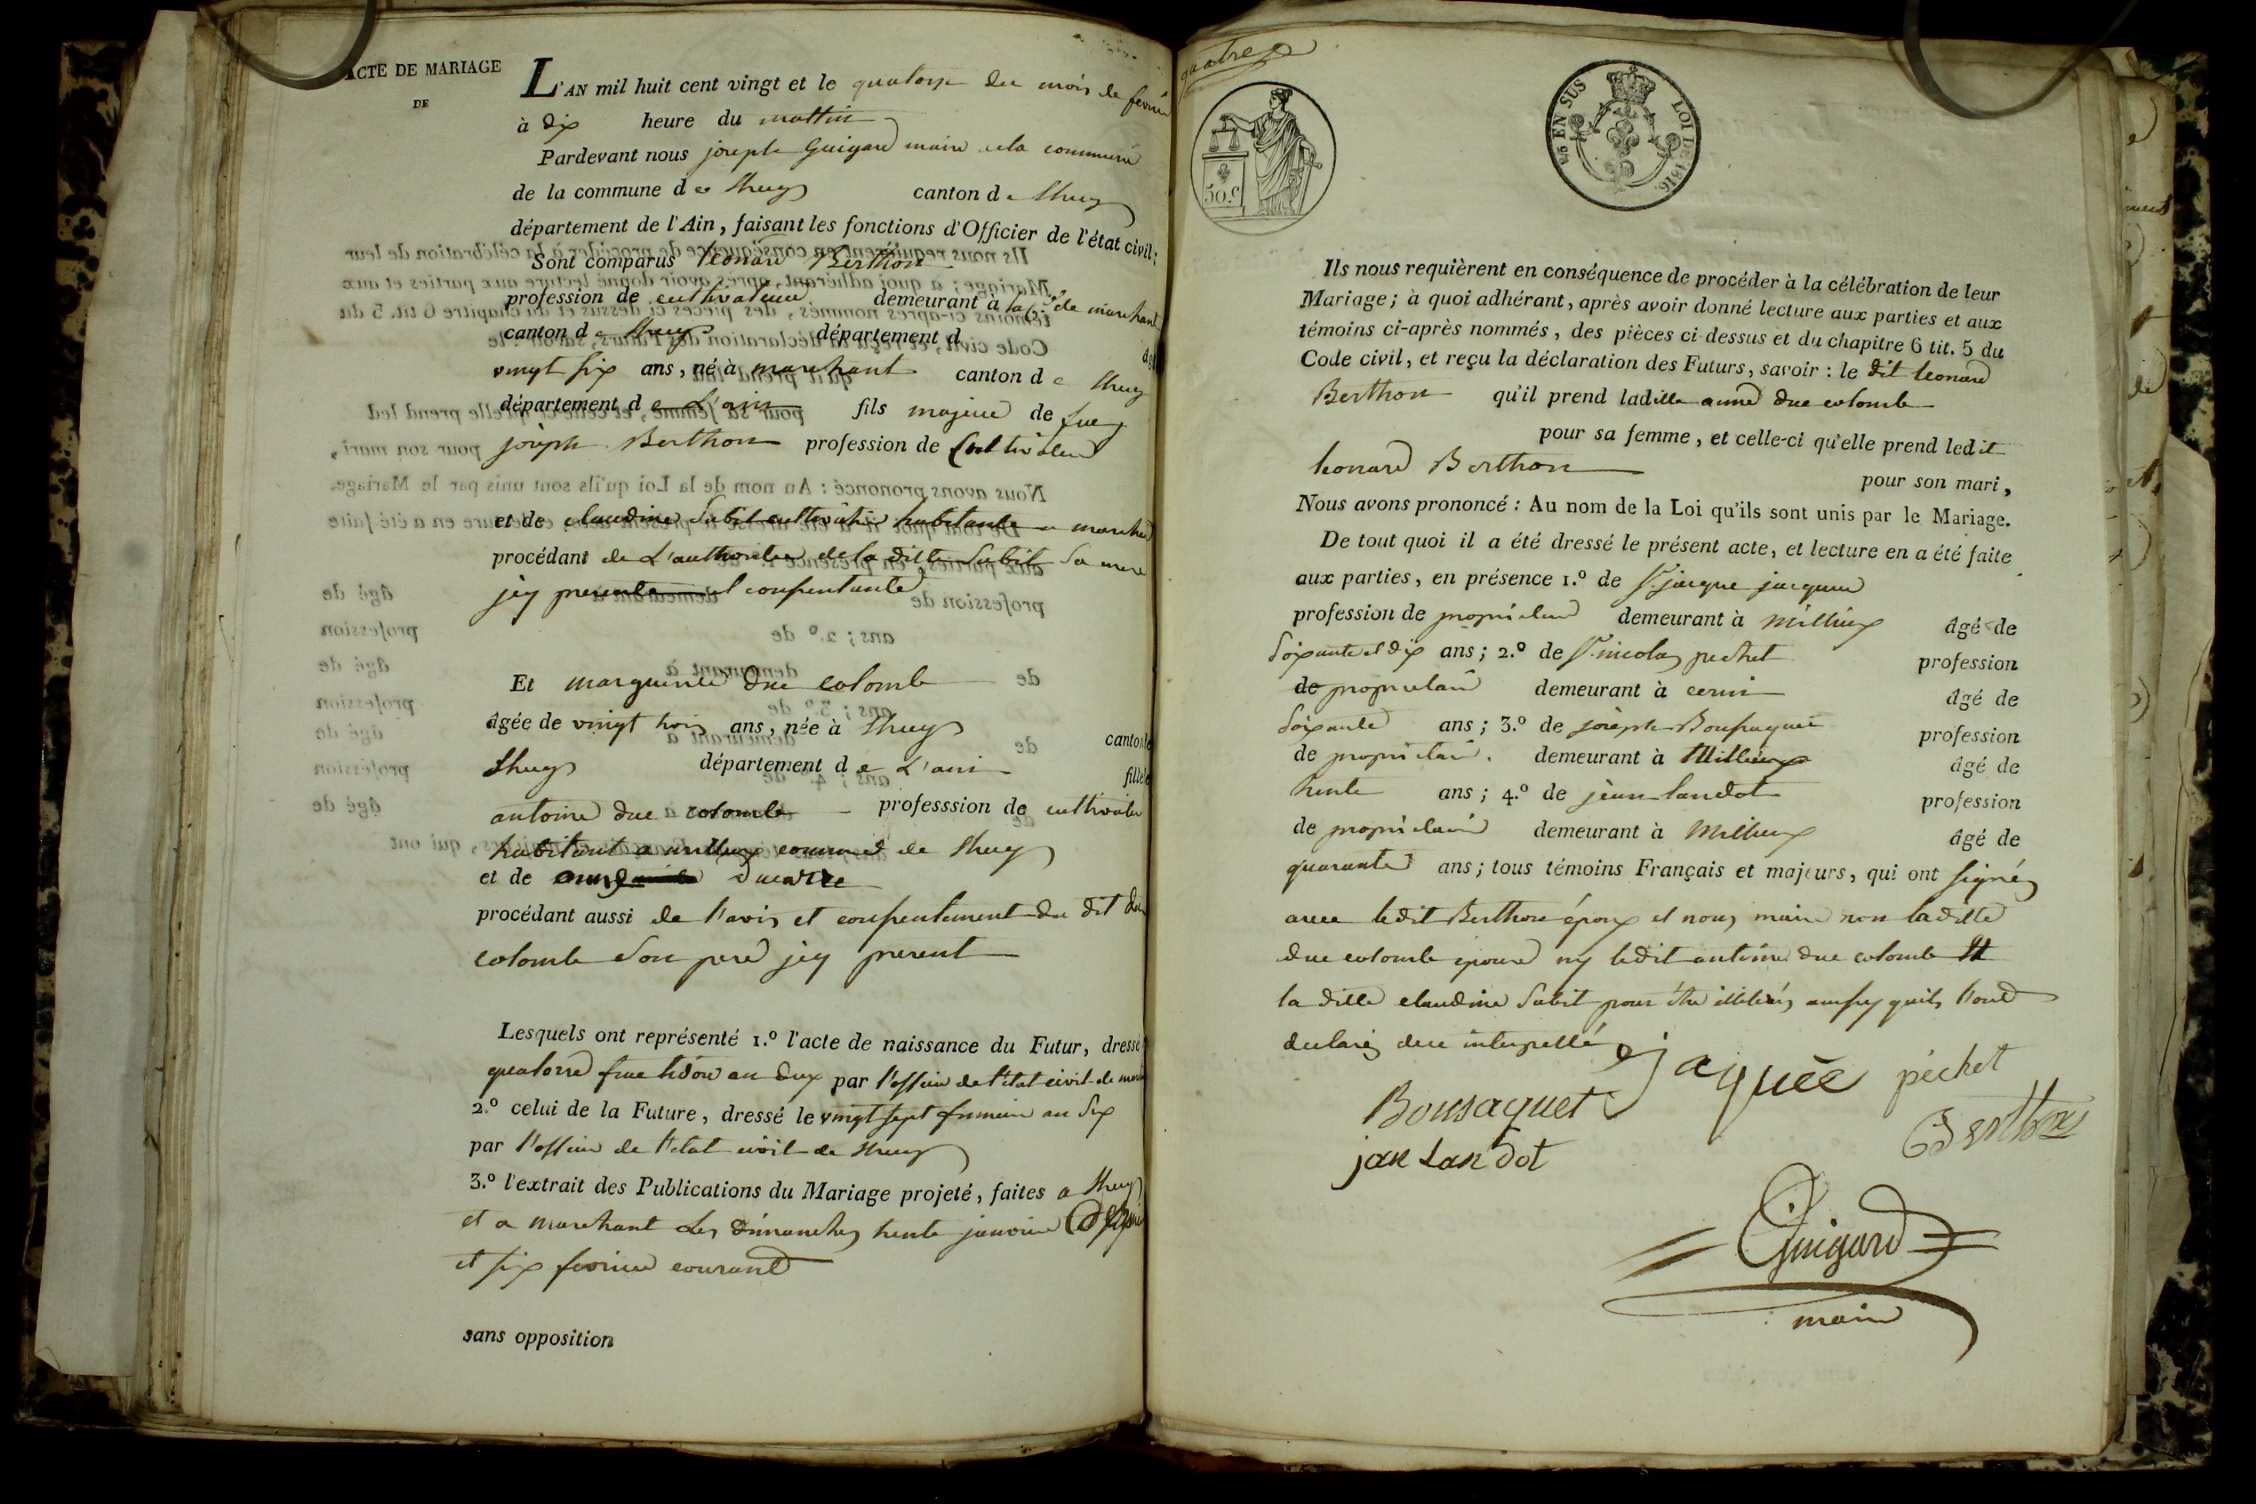 ACTE DE MARIAGE
DE
L'AN mil huit cent vingt et le quatorze du mois de fevrier
à dix heure du mattin
Pardevant nous joseph Guigard maire de la commune
de la commune de lhuys canton de lhuys
département de l'Ain, faisant les fonctions d'Officier de l'état civil;
Sont comparus leonard Berthon
profession de cultivateur demeurant à la de marchant
canton de lhuys département d âgé
vingt six ans, né à marchant canton de lhuys
département de L'ain fils majeur de feu
joseph Berthon profession de Cultivateur
et de claudine Subit cultivatrice habitante a marchant
procédant de L'authoritee de la ditte Subit sa mere
jcy presente et consentante
Et marguerite duc colomb
âgée de vingt trois ans, née à lhuys canton de
lhuys département de L'ain fille de
antoine duc colomb professsion de cultivateur
habitant a millieux commune de lhuys
et de ducarre
procédant aussi de l'avis et consentement du dit duc
colomb son pere jcy present
Lesquels ont représenté 1.º l'acte de naissance du Futur, dressé
quatorze fructidor an deux par l'officier de l'état civil de
2.º celui de la Future, dressé le vingt sept frimaire an six
par l'officier de l'état civil de lhuys
3.º l'extrait des Publications du Mariage projeté, faites a lhuys
et a marchant les dimanches trente janvier
et six fevrier courant
sans opposition
quatre
50.C
25 EN SUS
LOI DE 1816
Ils nous requièrent en conséquence de procéder à la célébration de leur
Mariage; à quoi adhérant, après avoir donné lecture aux parties et aux
témoins ci-après nommés, des pièces ci-dessus et du chapitre 6 tit. 5 du
Code civil, et reçu la déclaration des Futurs, savoir: le dit leonard
Berthon qu'il prend laditte duc colomb
pour sa femme, et celle-ci qu'elle prend ledit
leonard Berthon
pour son mari,
Nous avons prononcé: Au nom de la Loi qu'ils sont unis par le Mariage.
De tout quoi il a été dressé le présent acte, et lecture en a été faite
aux parties, en présence 1.º de Sr jacque
profession de demeurant à millieux âgé de
soixante et dix ans; 2.º de Sr nicolas pechet profession
de propriétaire demeurant à âgé de
soixante ans; 3.º de joseph Bousaquet profession
de propriétaire demeurant à Millieux âgé de
trente ans; 4.º de jean landot profession
de propriétaire demeurant à Millieux âgé de
quarante ans; tous témoins Français et majeurs, qui ont signés
avec ledit Berthon époux et nous maire non laditte
duc colomb epouse ny ledit antoine duc colomb
la ditte claudine Subit pour être illitérés ainsy quils l'ont
declarés de ce interpellé
Jaquée péchet
Bousaquet
Berthon
jan Landot
Guigard
maire